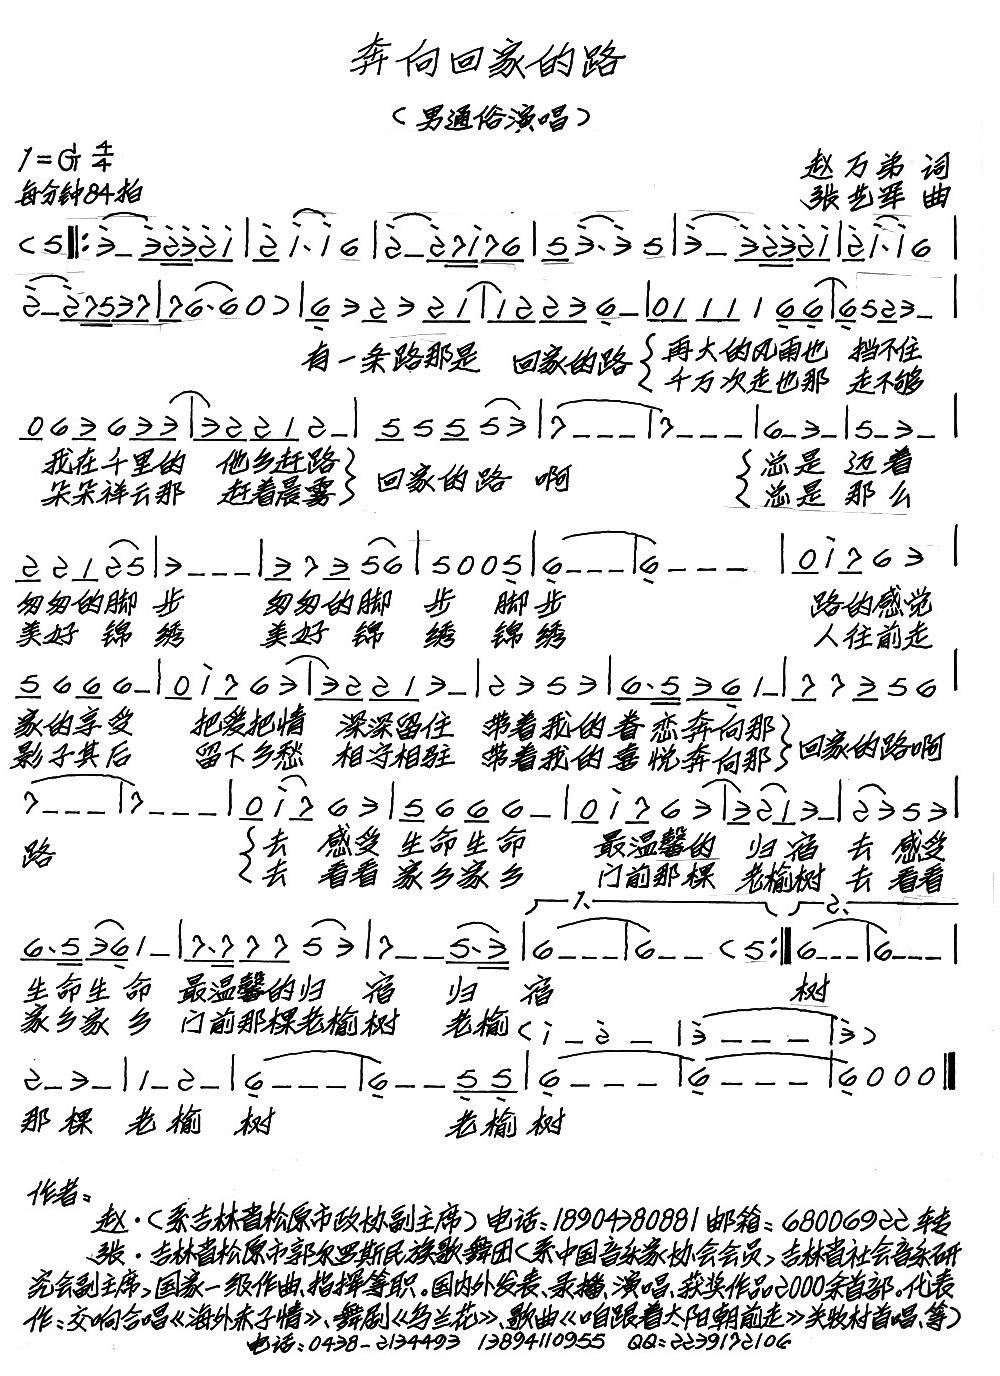 奔向回家的路
(男通俗演唱)
1=G 4/4
每分钟84拍
赵万弟 词
张艺军 曲
有一条路那是 回家的路 再大的风雨也 挡不住
千万次走也那 走不够
我在千里的 他乡赶路 回家的路 啊 总是 迈着
朵朵祥云那 赶着晨雾 总是 那么
匆匆的脚 步 匆匆的脚 步 脚步 路的感觉
美好 锦 绣 美好 锦 绣 锦绣 人往前走
家的享受 把爱把情 深深留住 带着我的眷 恋奔向那 回家的路啊
影子其后 留下乡愁 相守相驻 带着我的喜 悦奔向那
路 去 感受 生命生命 最温馨的 归 宿 去 感受
去 看看 家乡家乡 门前那棵 老榆树 去 看看
生命生 命 最温馨的归 宿 归 宿 树
家乡家 乡 门前那棵老榆树 老榆
那 棵 老 榆 树 老榆树
作者:
赵·(系吉林省松原市政协副主席)电话:18904380881 邮箱:68006922转
张·吉林省松原市郭尔罗斯民族歌舞团(系中国音乐家协会会员,吉林省社会音乐研
究会副主席,国家一级作曲、指挥等职。国内外发表、录播、演唱、获奖作品2000余首部。代表
作:交响合唱《海外赤子情》、舞剧《乌兰花》、歌曲《咱跟着太阳朝前走》关牧村首唱、等)
电话:0438-2134493 13894110955 QQ:2239172106